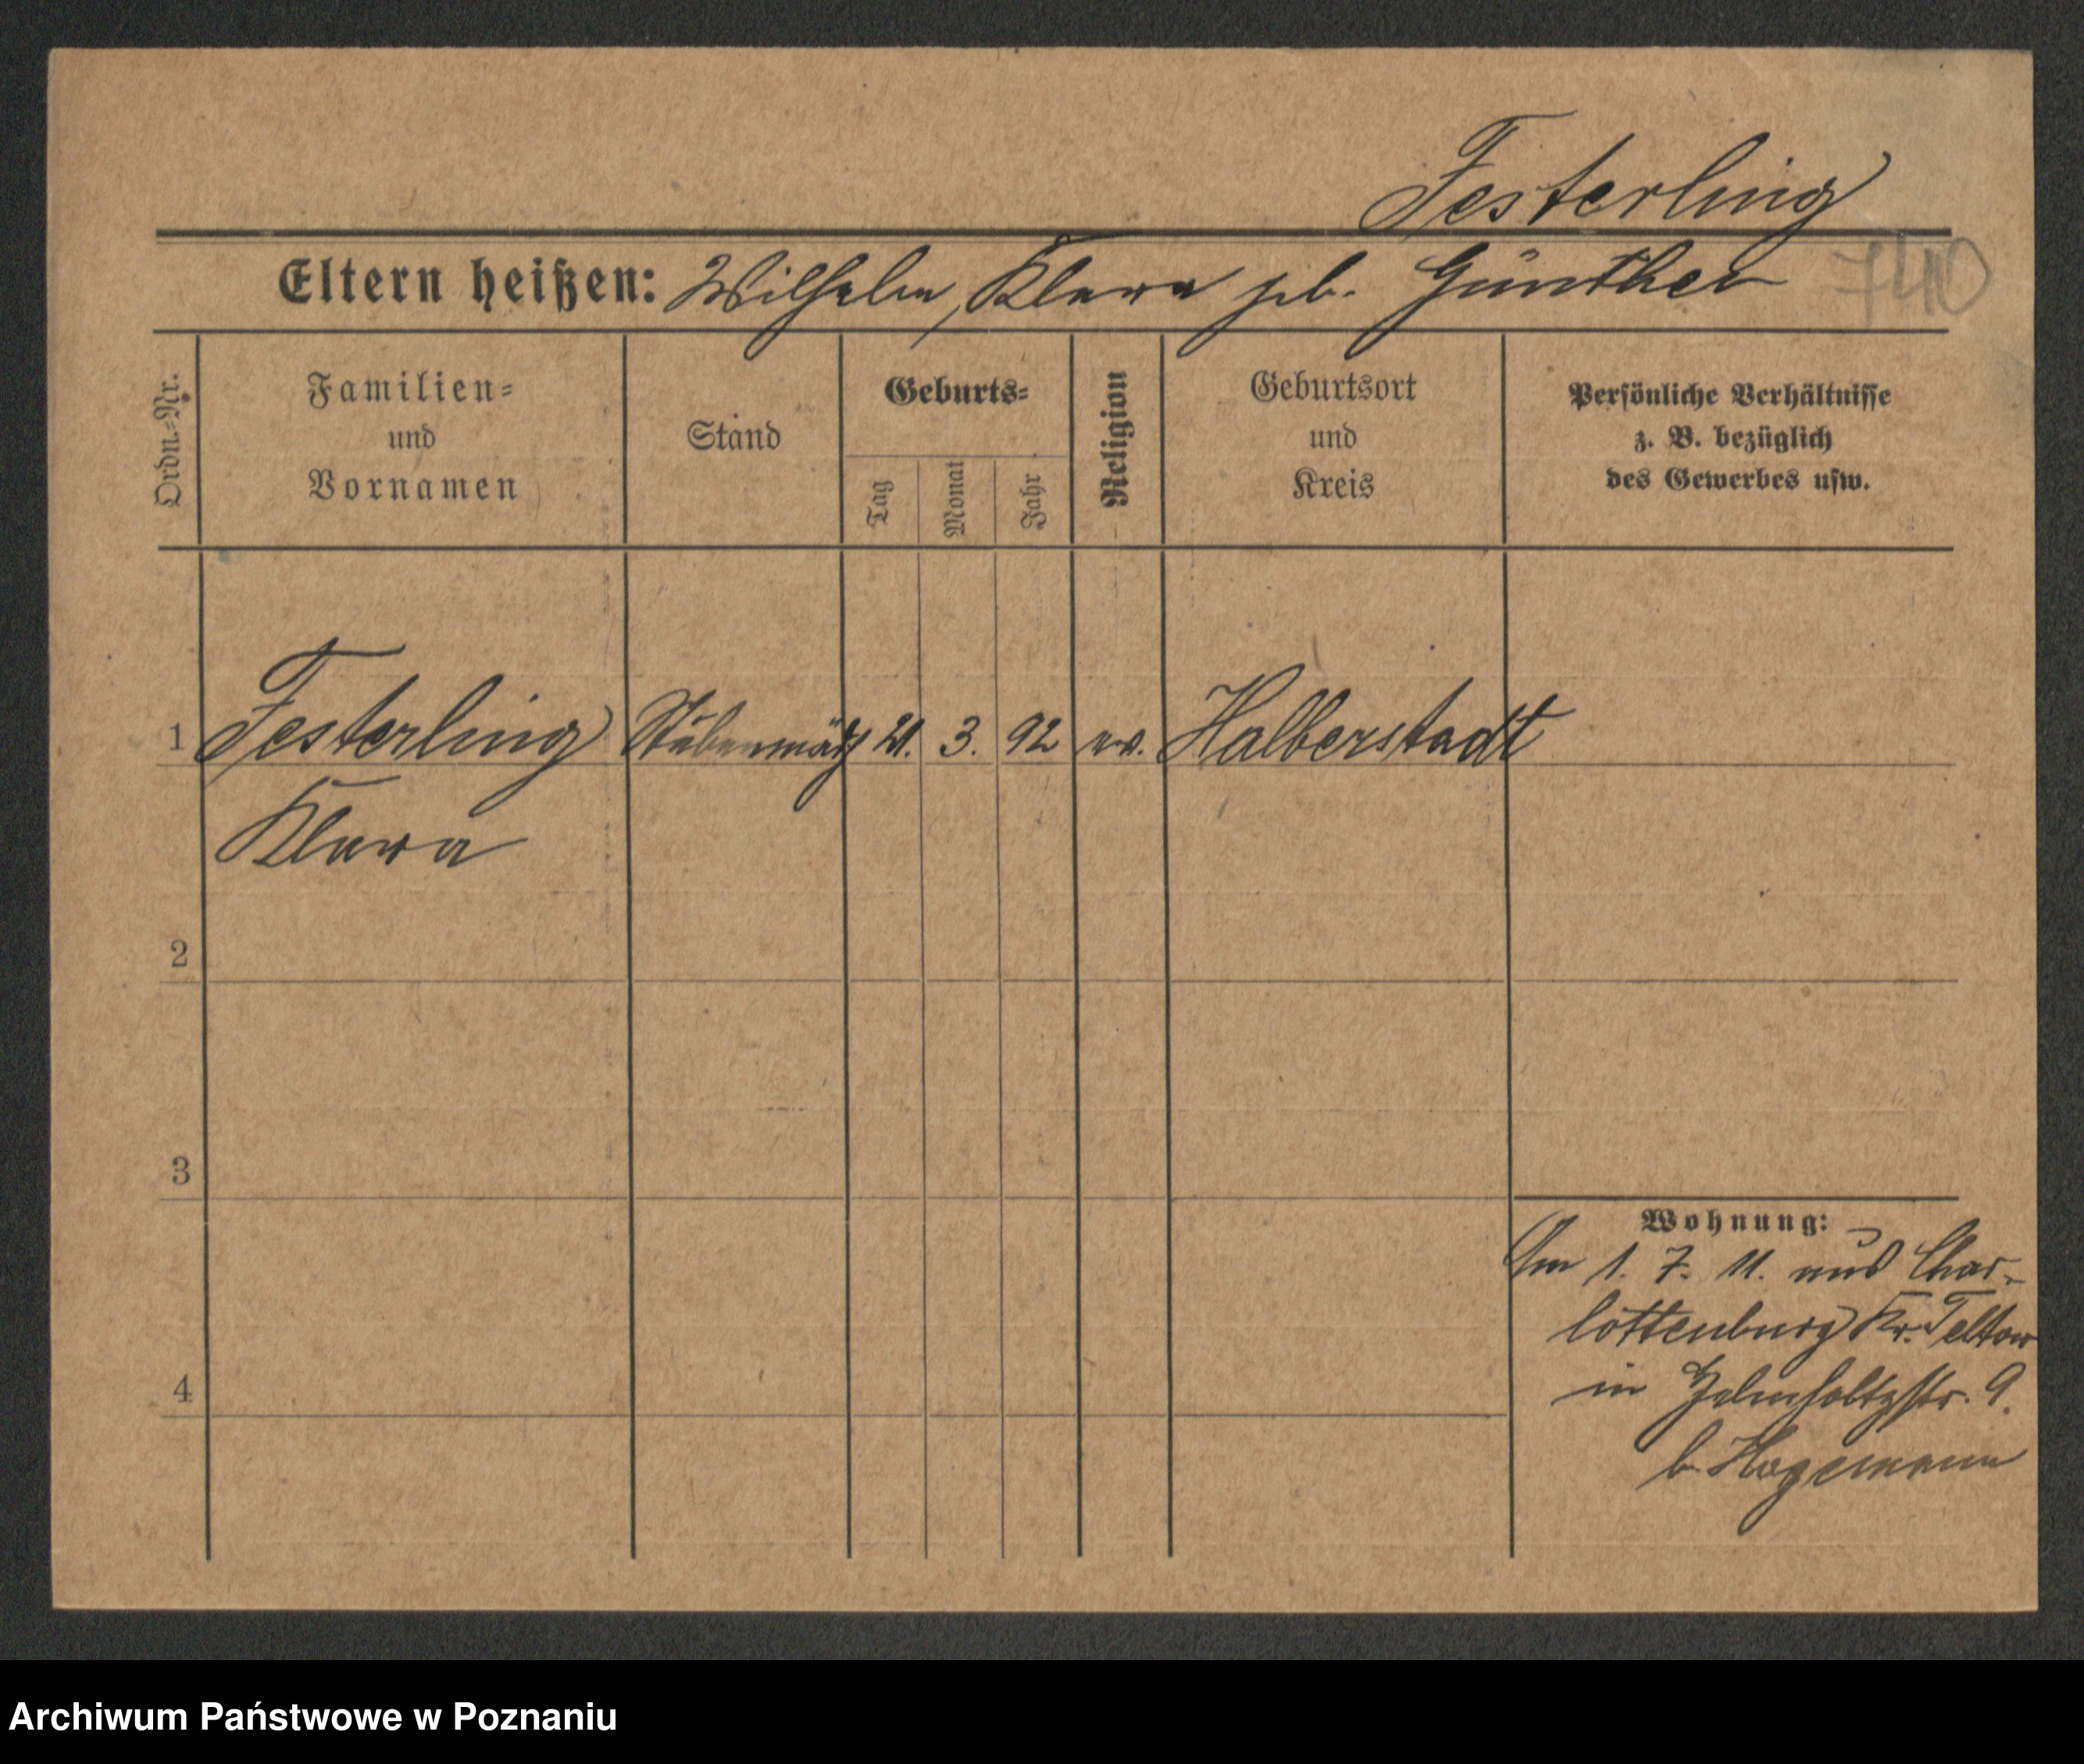 Festerling
Eltern heißen: Wilhelm, Klara geb. Günther
740
Ordn.=Nr.
Familien=
und
Vornamen
Stand
Geburts=
Tag
Monat
Jahr
Religion
Geburtsort
und
Kreis
Persönliche Verhältnisse
z. B. bezüglich
des Gewerbes usw.
1 Festerling 21. 3. 92 ev. Halberstadt
Klara
2
3
4
Wohnung:
Am 1. 7. 11. aus Char-
lottenburg Kr. Teltow
in Helmholtzstr. 9.
b. Hagemann
Archiwum Państwowe w Poznaniu